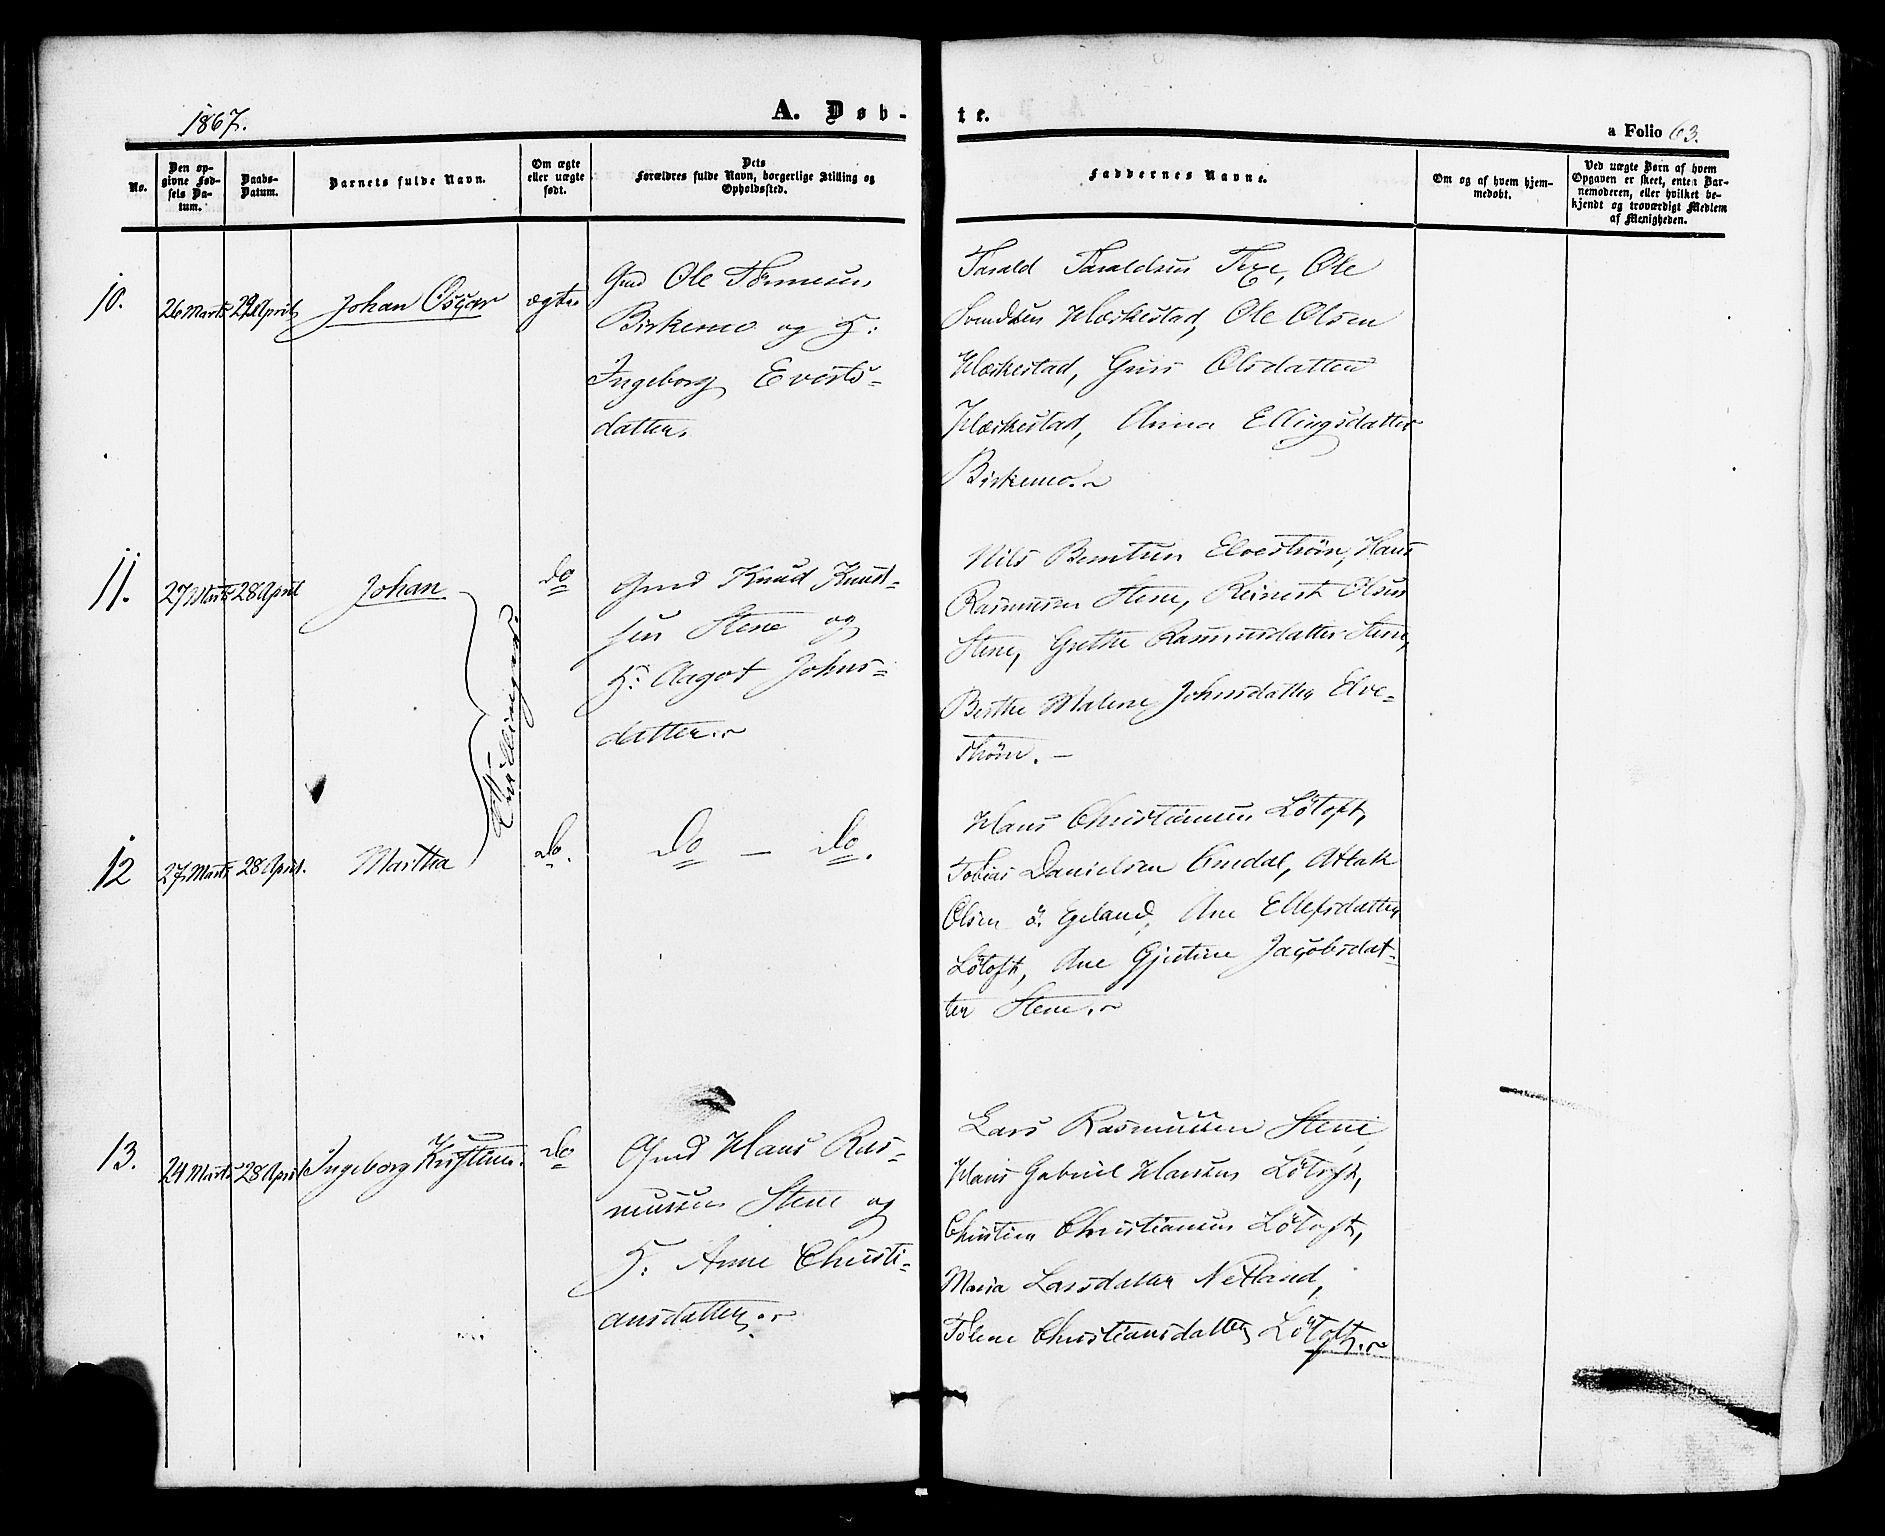 1867.
A. Døb-
te.
a Folio 63.
No.
Den op-
givne Fød-
sels Da-
tum.
Daabs-
Datum.
Barnets fulde Navn.
Om ægte
eller uægte
født.
Dets
Forældres fulde Navn, borgerlige Stilling og
Opholdssted.
Faddernes Navne.
Om og af hvem hjem-
medøbt.
Ved uægte Børn af hvem
Opgaven er skeet, enten Bar-
nemoderen, eller hvilket be-
kjendt og troværdigt Medlem
af Menigheden.
10.
26 Marts
April
Johan Oscar
ægte
Gmd Ole Tønnesen
Birkemo og H:
Ingeborg Everts-
datter.
Tarald Taraldsen Ole
Svendsen Hæskestad, Ole Olsen
Hæskestad, Guri Olsdatter
Hæskestad, Anna Ellingsdatter
Birkemo.
11.
27 Marts
28 April
Johan
Tvillinger
do
Gmd Knud Knud-
sen Stene og
H: Aagot Johns-
datter.
Nils Berntsen Elvestrøm, Hans
Rasmussen Stene, Reinert Olsen
Stene, Grethe Rasmusdatter Stene,
Berthe Malene Johnsdatter Elve-
strøm. —
12
27 Marts
28 April.
Martha
do.
do — do.
Hans Christiansen Løtoft,
Tobias Danielsen Omdal, Atlak
Olsen ö. Egeland, Ane Ellefsdatter
Løtoft, Ane Gjertine Jacobsdat-
ter Stene.
13.
24 Marts
28 April
Ingeborg Kristense.
do
Gmd Hans Ras-
mussen Stene og
H: Anne Christi-
ansdatter.
Lars Rasmussen Stene,
Hans Gabriel Hansen Løtoft,
Christian Christiansen Løtoft,
Maria Larsdatter Netland,
Tolene Christiansdatter Løtoft.